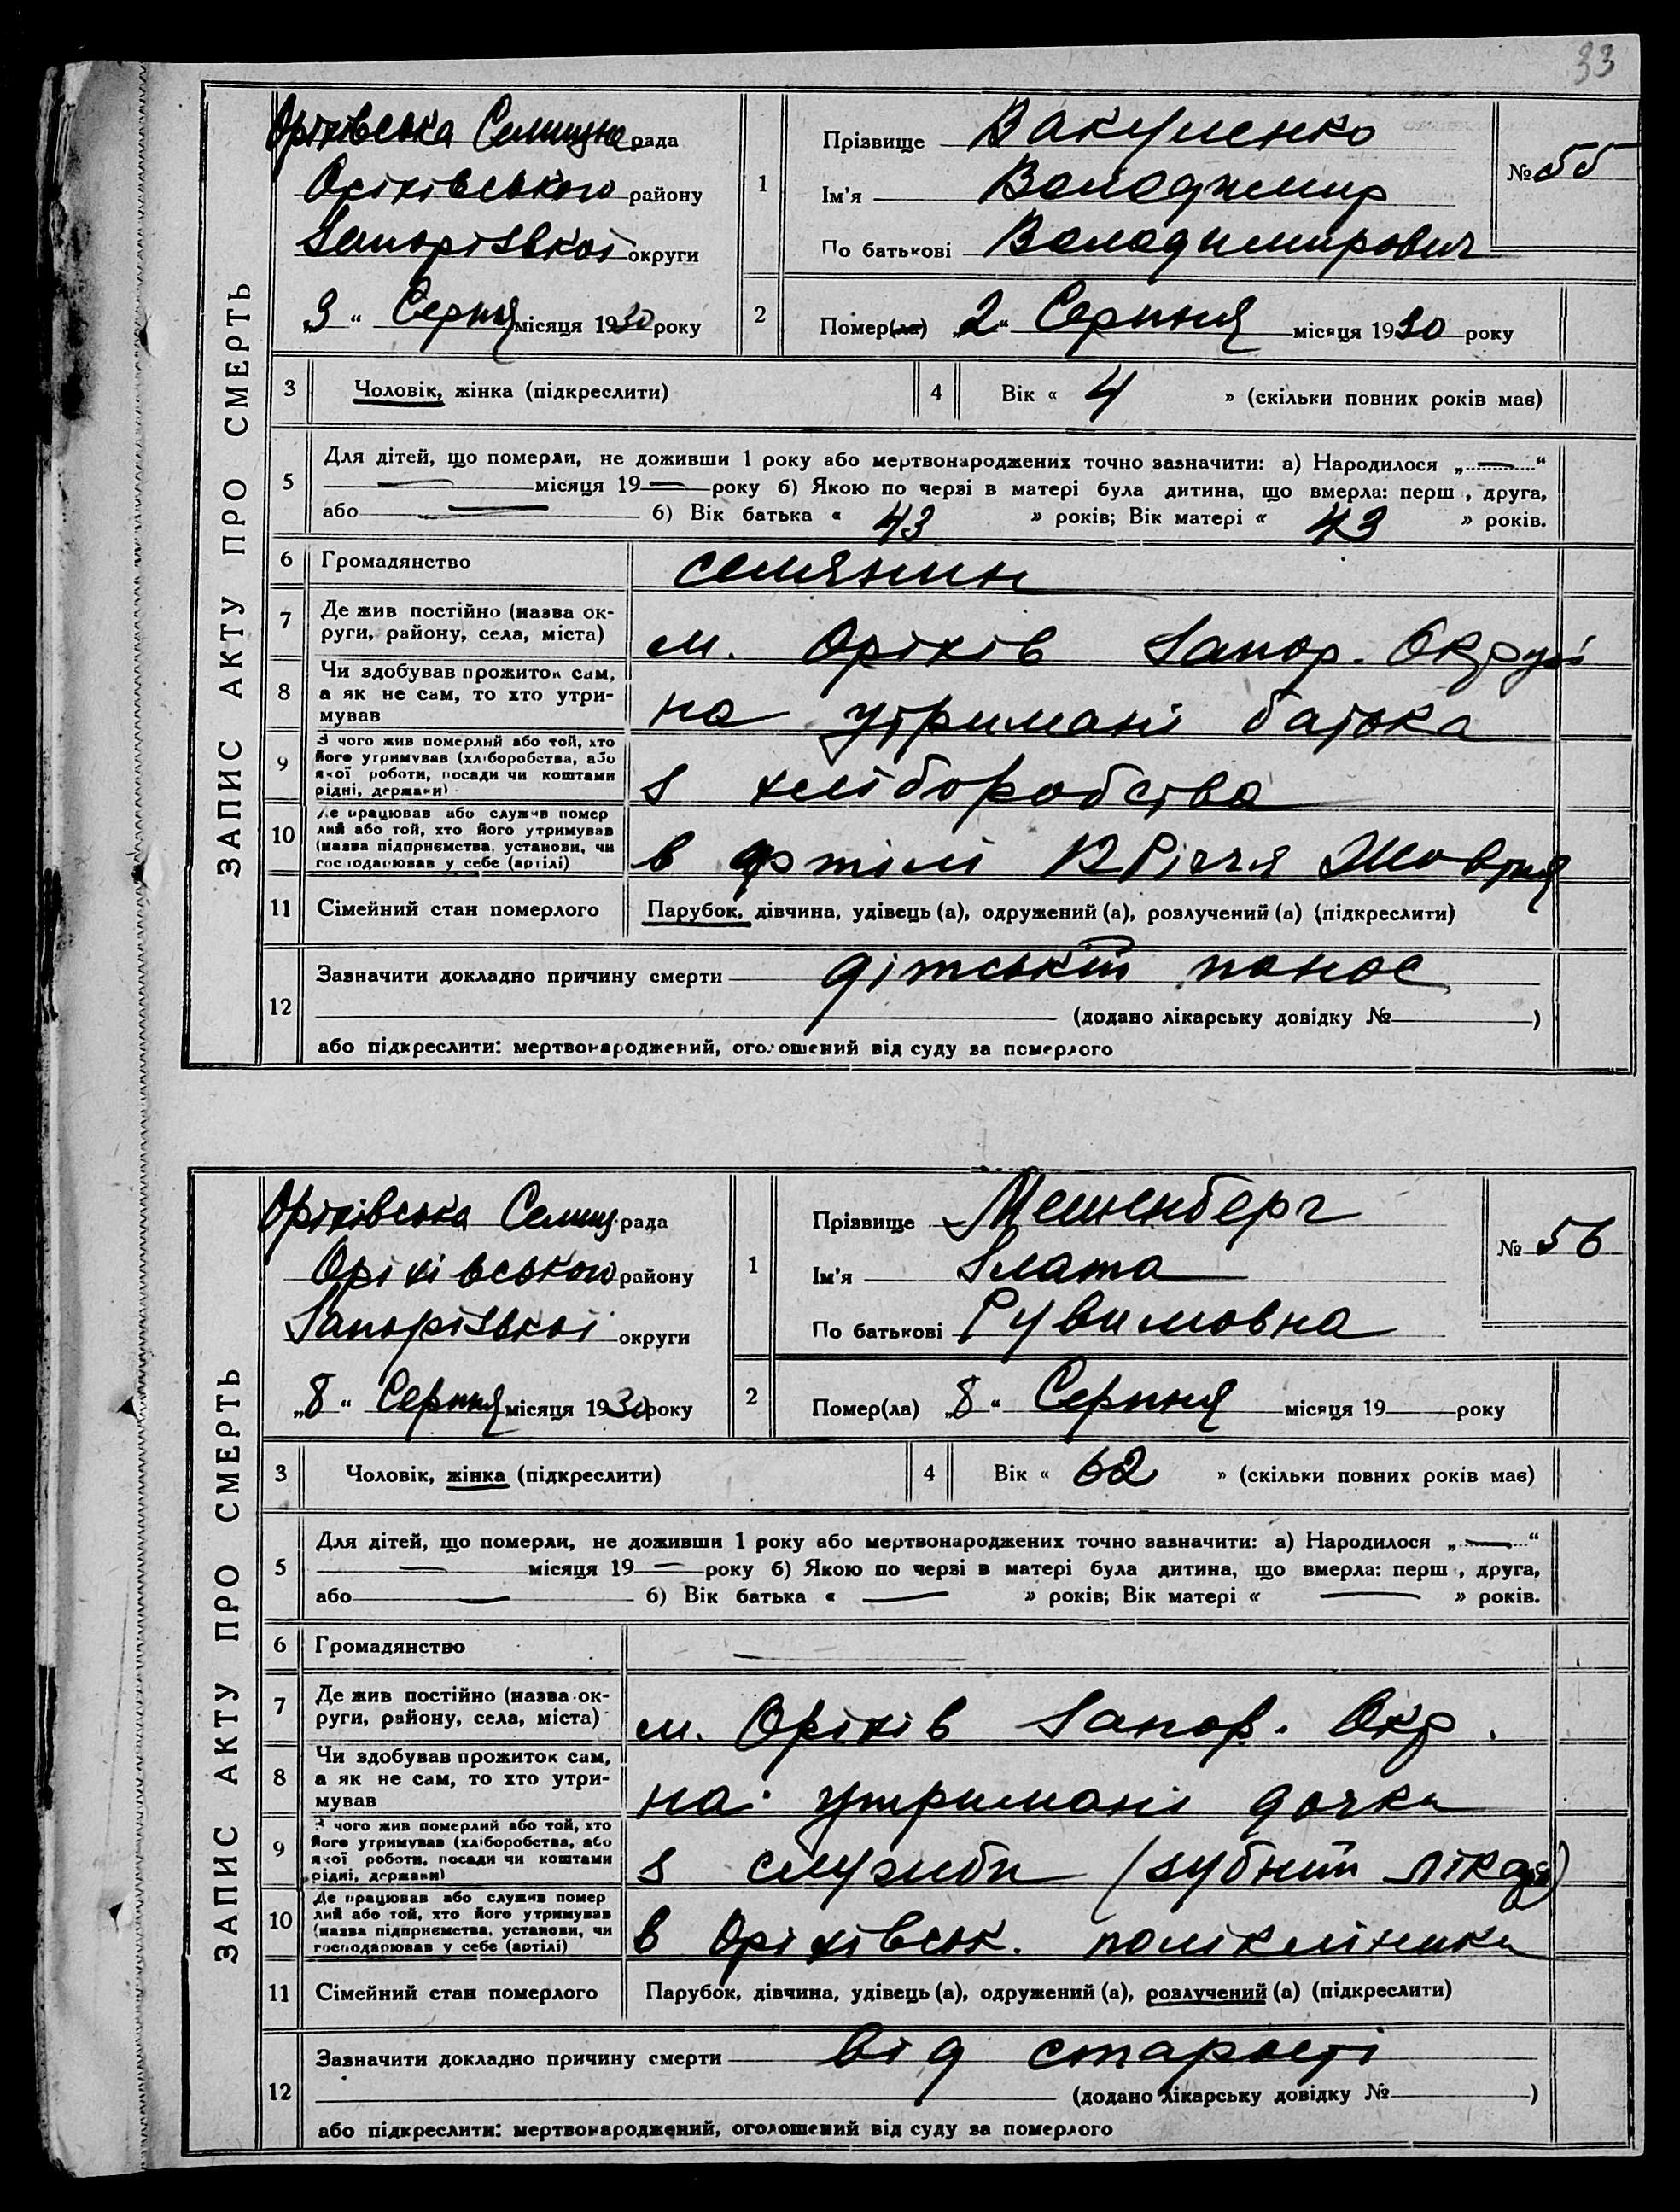 33
ЗАПИС АКТУ ПРО СМЕРТЬ
Оріхівська Селищна рада
Оріхівського району
Запорізької округи
„3“ Серпня місяця 1930 року
1
Прізвище Вакуленко
Ім'я Володимир
По батькові Володимирович
№ 55
2
Помер(ла) „2“ Серпня місяця 1930 року
3 Чоловік, жінка (підкреслити)
4 Вік « 4 » (скільки повних років має)
5
Для дітей, що померли, не доживши 1 року або мертвонароджених точно зазначити: а) Народилося „—“
— місяця 19— року б) Якою по черзі в матері була дитина, що вмерла: перш , друга,
або — б) Вік батька « 43 » років; Вік матері « 43 » років.
6 Громадянство селянин
7 Де жив постійно (назва ок-
руги, району, села, міста)
м. Оріхів Запор. Округи
8 Чи здобував прожиток сам,
а як не сам, то хто утри-
мував
на утримані батька
9 З чого жив померлий або той, хто
його утримував (хліборобства, або
якої роботи, посади чи коштами
рідні, держави)
з хліборобства
10 Де працював або служив помер
лий або той, хто його утримував
(назва підприємства, установи, чи
господарював у себе (артілі)
в артілі 12 Річчя Жовтня
11 Сімейний стан померлого Парубок, дівчина, удівець (а), одружений (а), розлучений (а) (підкреслити)
12
Зазначити докладно причину смерти дітський понос
(додано лікарську довідку № )
або підкреслити: мертвонароджений, оголошений від суду за померлого
ЗАПИС АКТУ ПРО СМЕРТЬ
Оріхівська Селищ. рада
Оріхівського району
Запорізької округи
„8“ Серпня місяця 1930 року
1
Прізвище
Ім'я Злата
По батькові Рувимовна
№ 56
2
Помер(ла) „8“ Серпня місяця 19— року
3 Чоловік, жінка (підкреслити)
4 Вік « 62 » (скільки повних років має)
5
Для дітей, що померли, не доживши 1 року або мертвонароджених точно зазначити: а) Народилося „—“
— місяця 19— року б) Якою по черзі в матері була дитина, що вмерла: перш , друга,
або — б) Вік батька « — » років; Вік матері « — » років.
6 Громадянство —
7 Де жив постійно (назва ок-
руги, району, села, міста)
м. Оріхів Запор. Окр.
8 Чи здобував прожиток сам,
а як не сам, то хто утри-
мував
на утримані дочки
9 З чого жив померлий або той, хто
його утримував (хліборобства, або
якої роботи, посади чи коштами
рідні, держави)
з служби (зубний лікарь)
10 Де працював або служив помер
лий або той, хто його утримував
(назва підприємства, установи, чи
господарював у себе (артілі)
в Оріхівськ. поліклініки
11 Сімейний стан померлого Парубок, дівчина, удівець (а), одружений (а), розлучений (а) (підкреслити)
12
Зазначити докладно причину смерти від старості
(додано лікарську довідку № )
або підкреслити: мертвонароджений, оголошений від суду за померлого